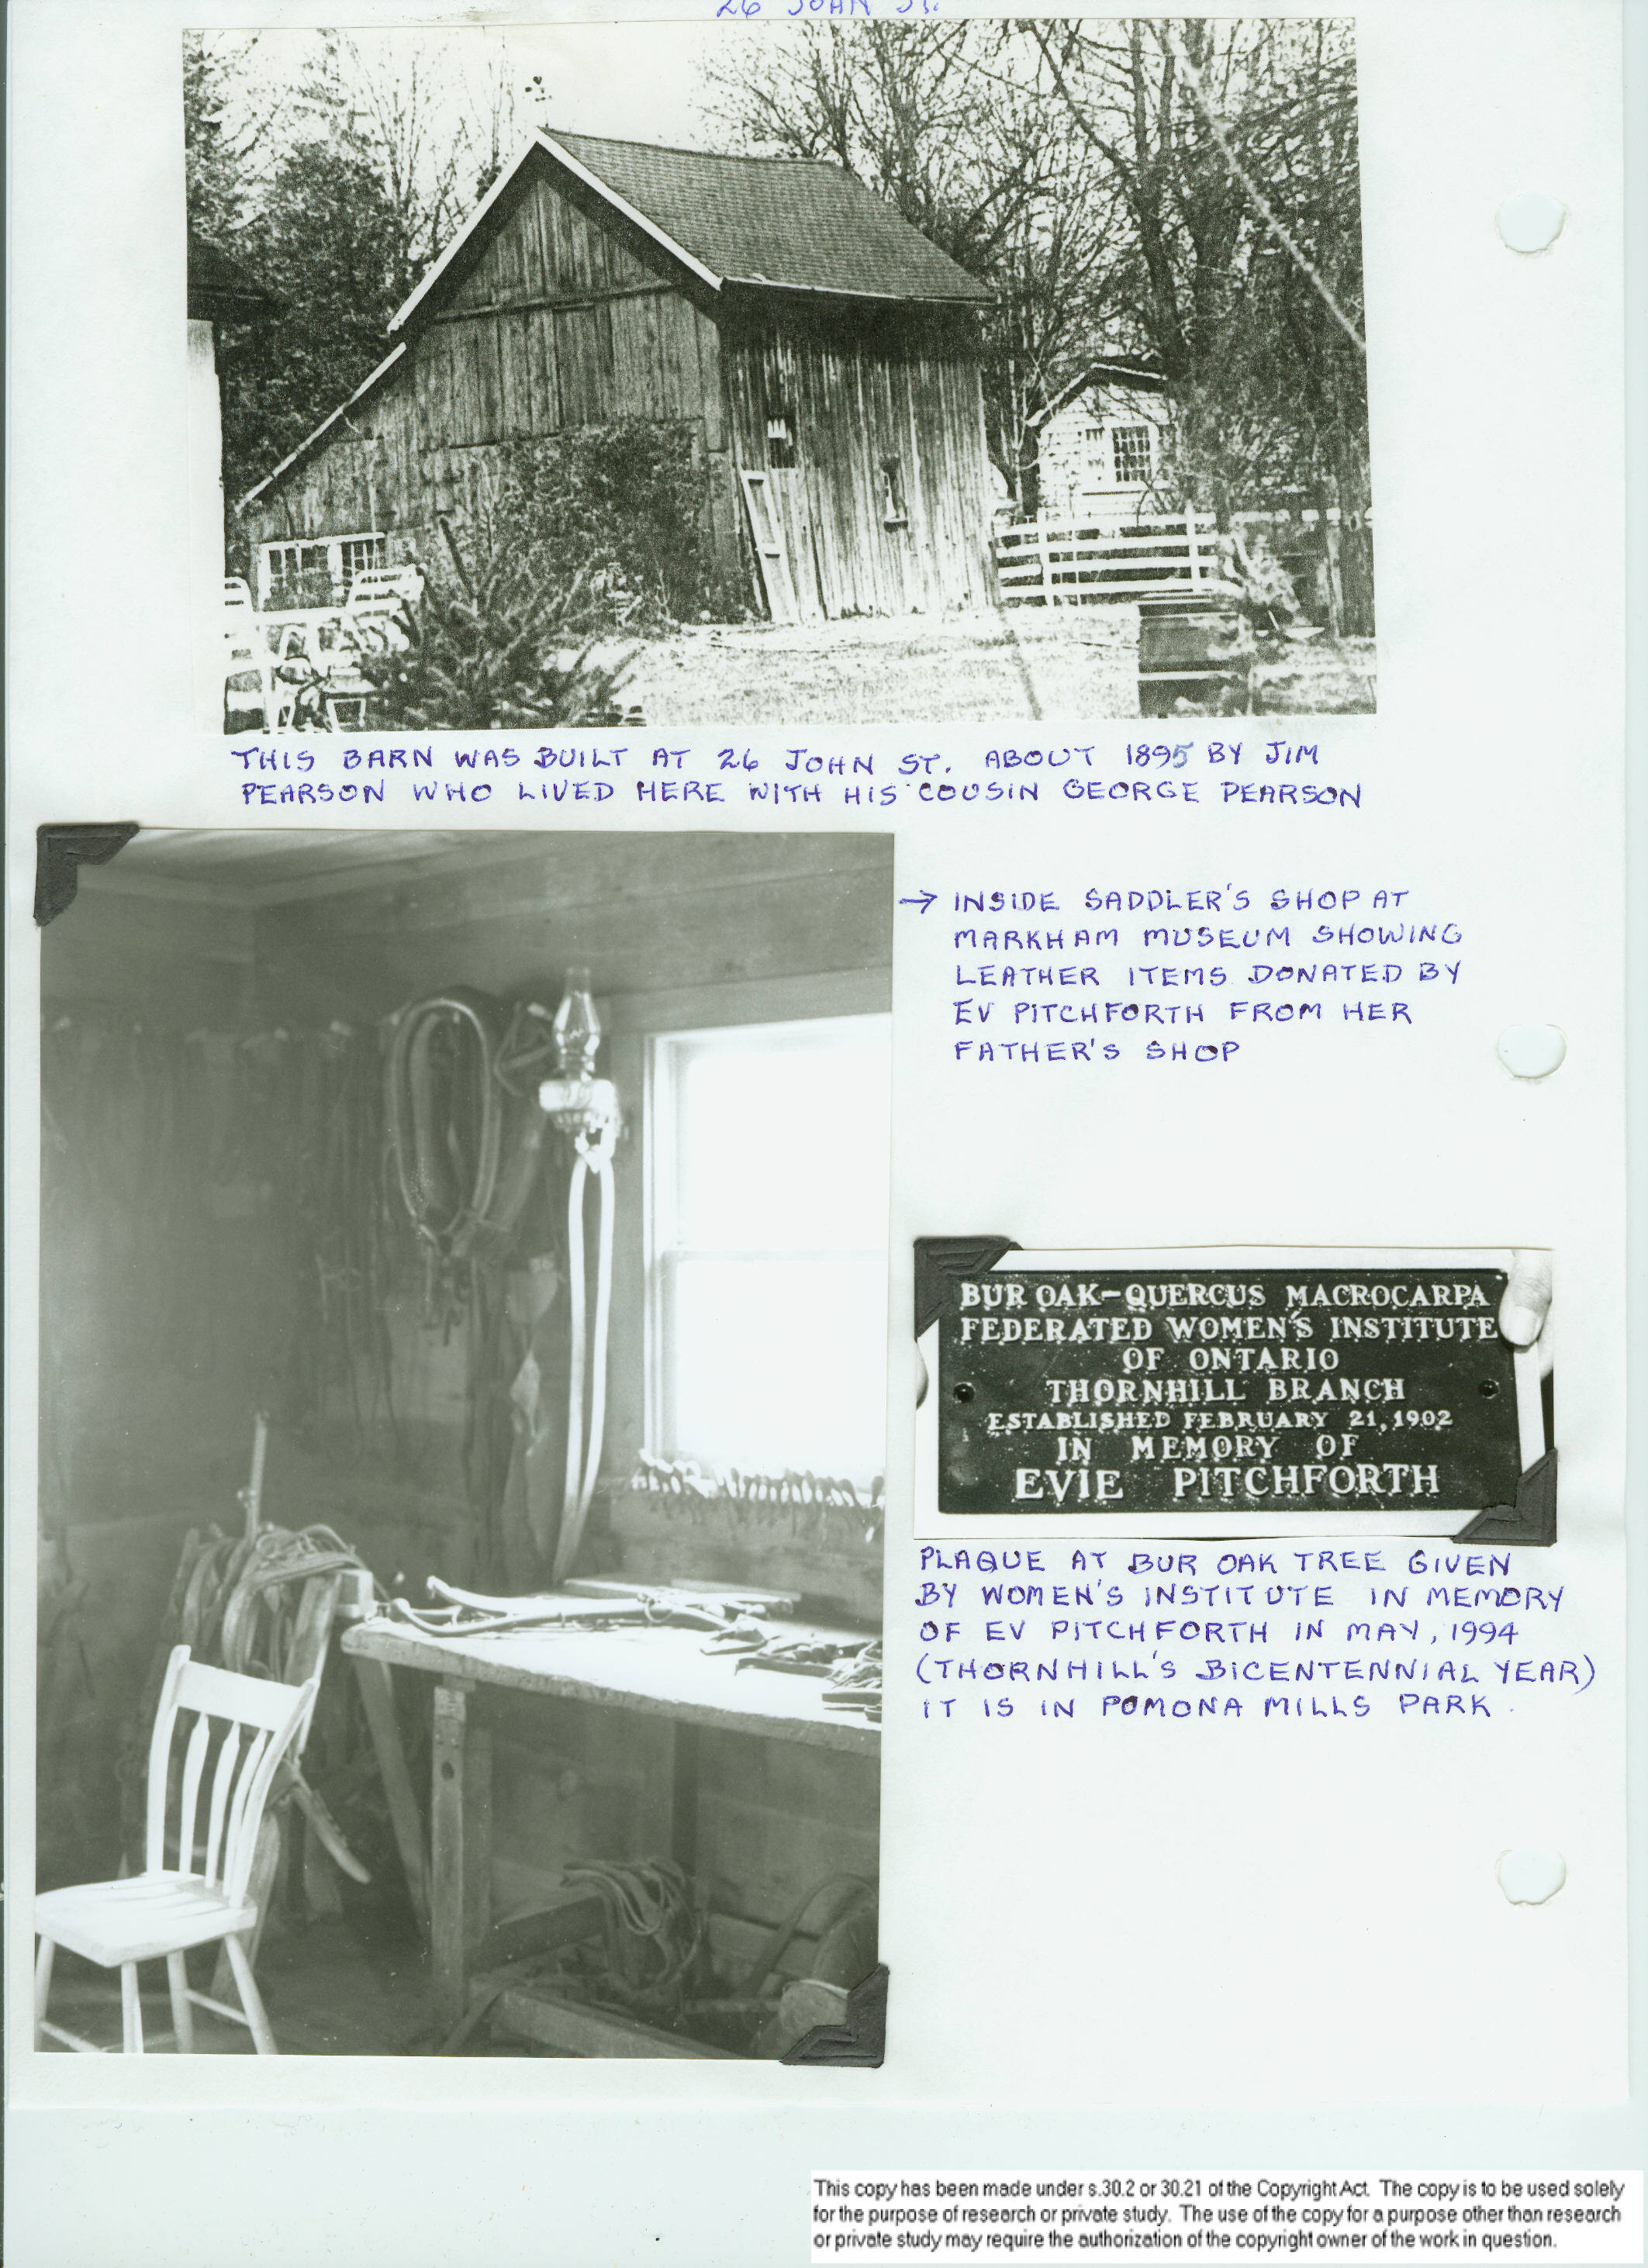 26 JOHN ST.
THIS BARN WAS BUILT AT 26 JOHN ST. ABOUT 1895 BY JIM
PEARSON WHO LIVED HERE WITH HIS COUSIN GEORGE PEARSON
→ INSIDE SADDLER'S SHOP AT
MARKHAM MUSEUM SHOWING
LEATHER ITEMS DONATED BY
EV PITCHFORTH FROM HER
FATHER'S SHOP
BUR OAK-QUERCUS MACROCARPA
FEDERATED WOMEN'S INSTITUTE
OF ONTARIO
THORNHILL BRANCH
ESTABLISHED FEBRUARY 21, 1902
IN MEMORY OF
EVIE PITCHFORTH
PLAQUE AT BUR OAK TREE GIVEN
BY WOMEN'S INSTITUTE IN MEMORY
OF EV PITCHFORTH IN MAY, 1994
(THORNHILL'S BICENTENNIAL YEAR)
IT IS IN POMONA MILLS PARK.
This copy has been made under s.30.2 or 30.21 of the Copyright Act. The copy is to be used solely
for the purpose of research or private study. The use of the copy for a purpose other than research
or private study may require the authorization of the copyright owner of the work in question.